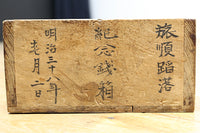 旅順蹈落
紀念錢箱
明治三十八年
壱月二日